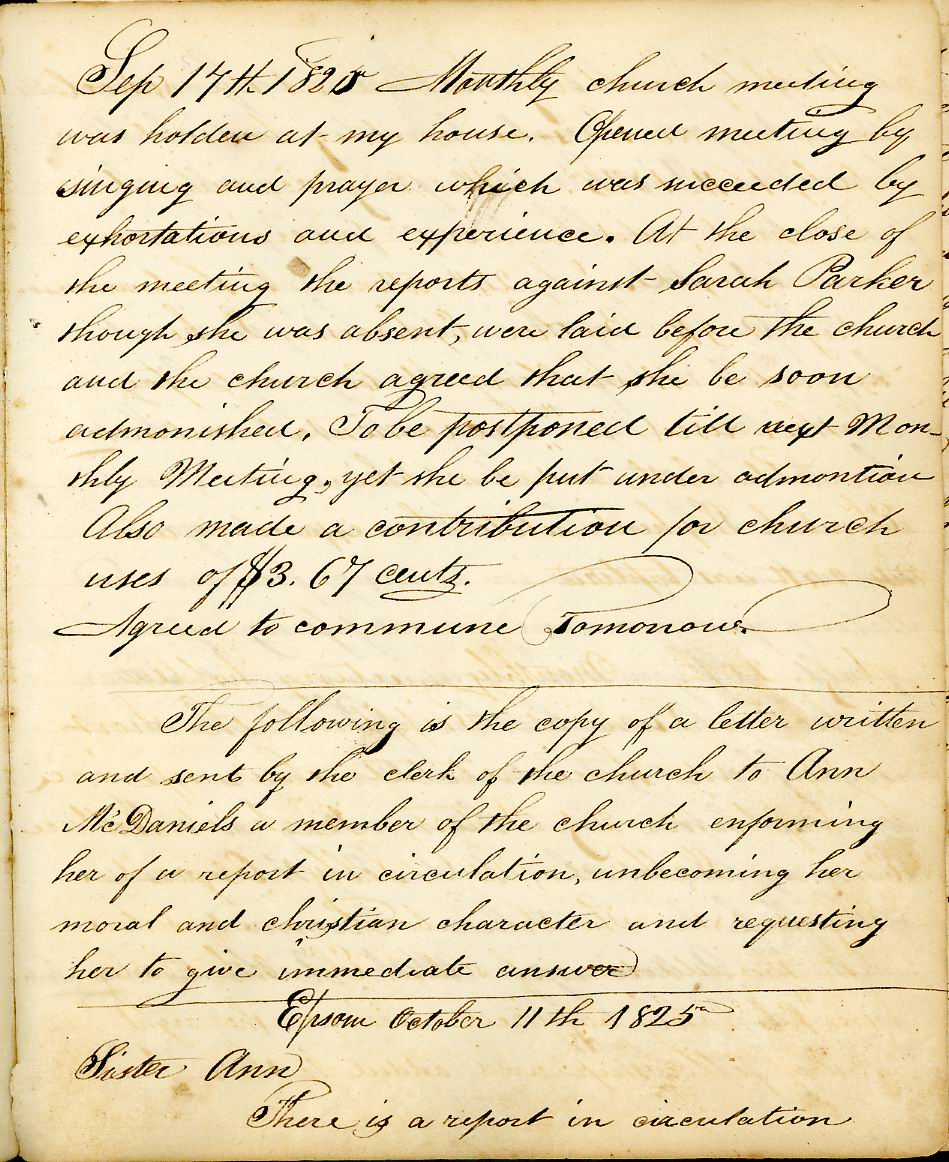 Sep 17th 1825 Monthly church meeting
was holden at my house. Opened meeting by
singing and prayer which was succeeded by
exhortations and experience. At the close of
the meeting the reports against Sarah Parker
though she was absent, were laid before the church
and the church agreed that she be soon
admonished. To be postponed till next Mon-
thly Meeting, yet she be put under admontion
Also made a contribution for church
uses of $3.67 cents.
Agreed to commune Tomorrow.
The following is the copy of a letter written
and sent by the clerk of the church to Ann
McDaniels a member of the church enforming
her of a report in circulation, unbecoming her
moral and christian character and requesting
her to give immediate answer
Epsom October 11th 1825
Sister Ann
There is a report in circulation